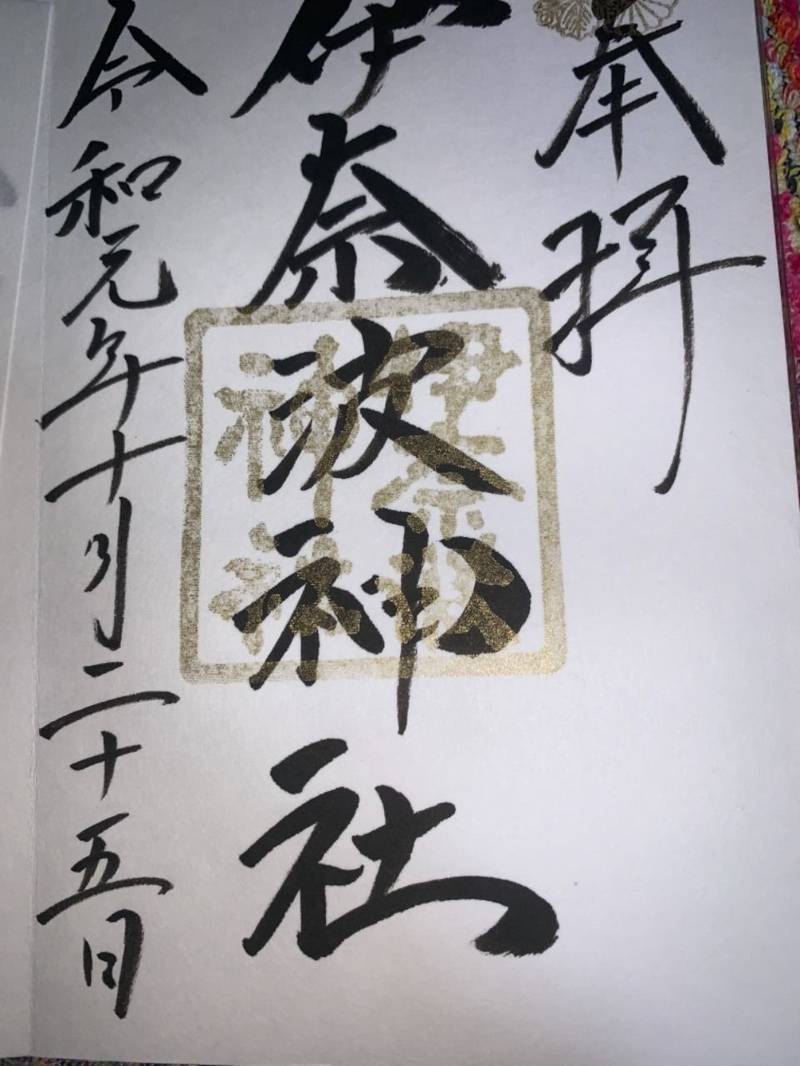 奉拝
伊奈波神社
伊奈波
神社
令和元年十月二十五日